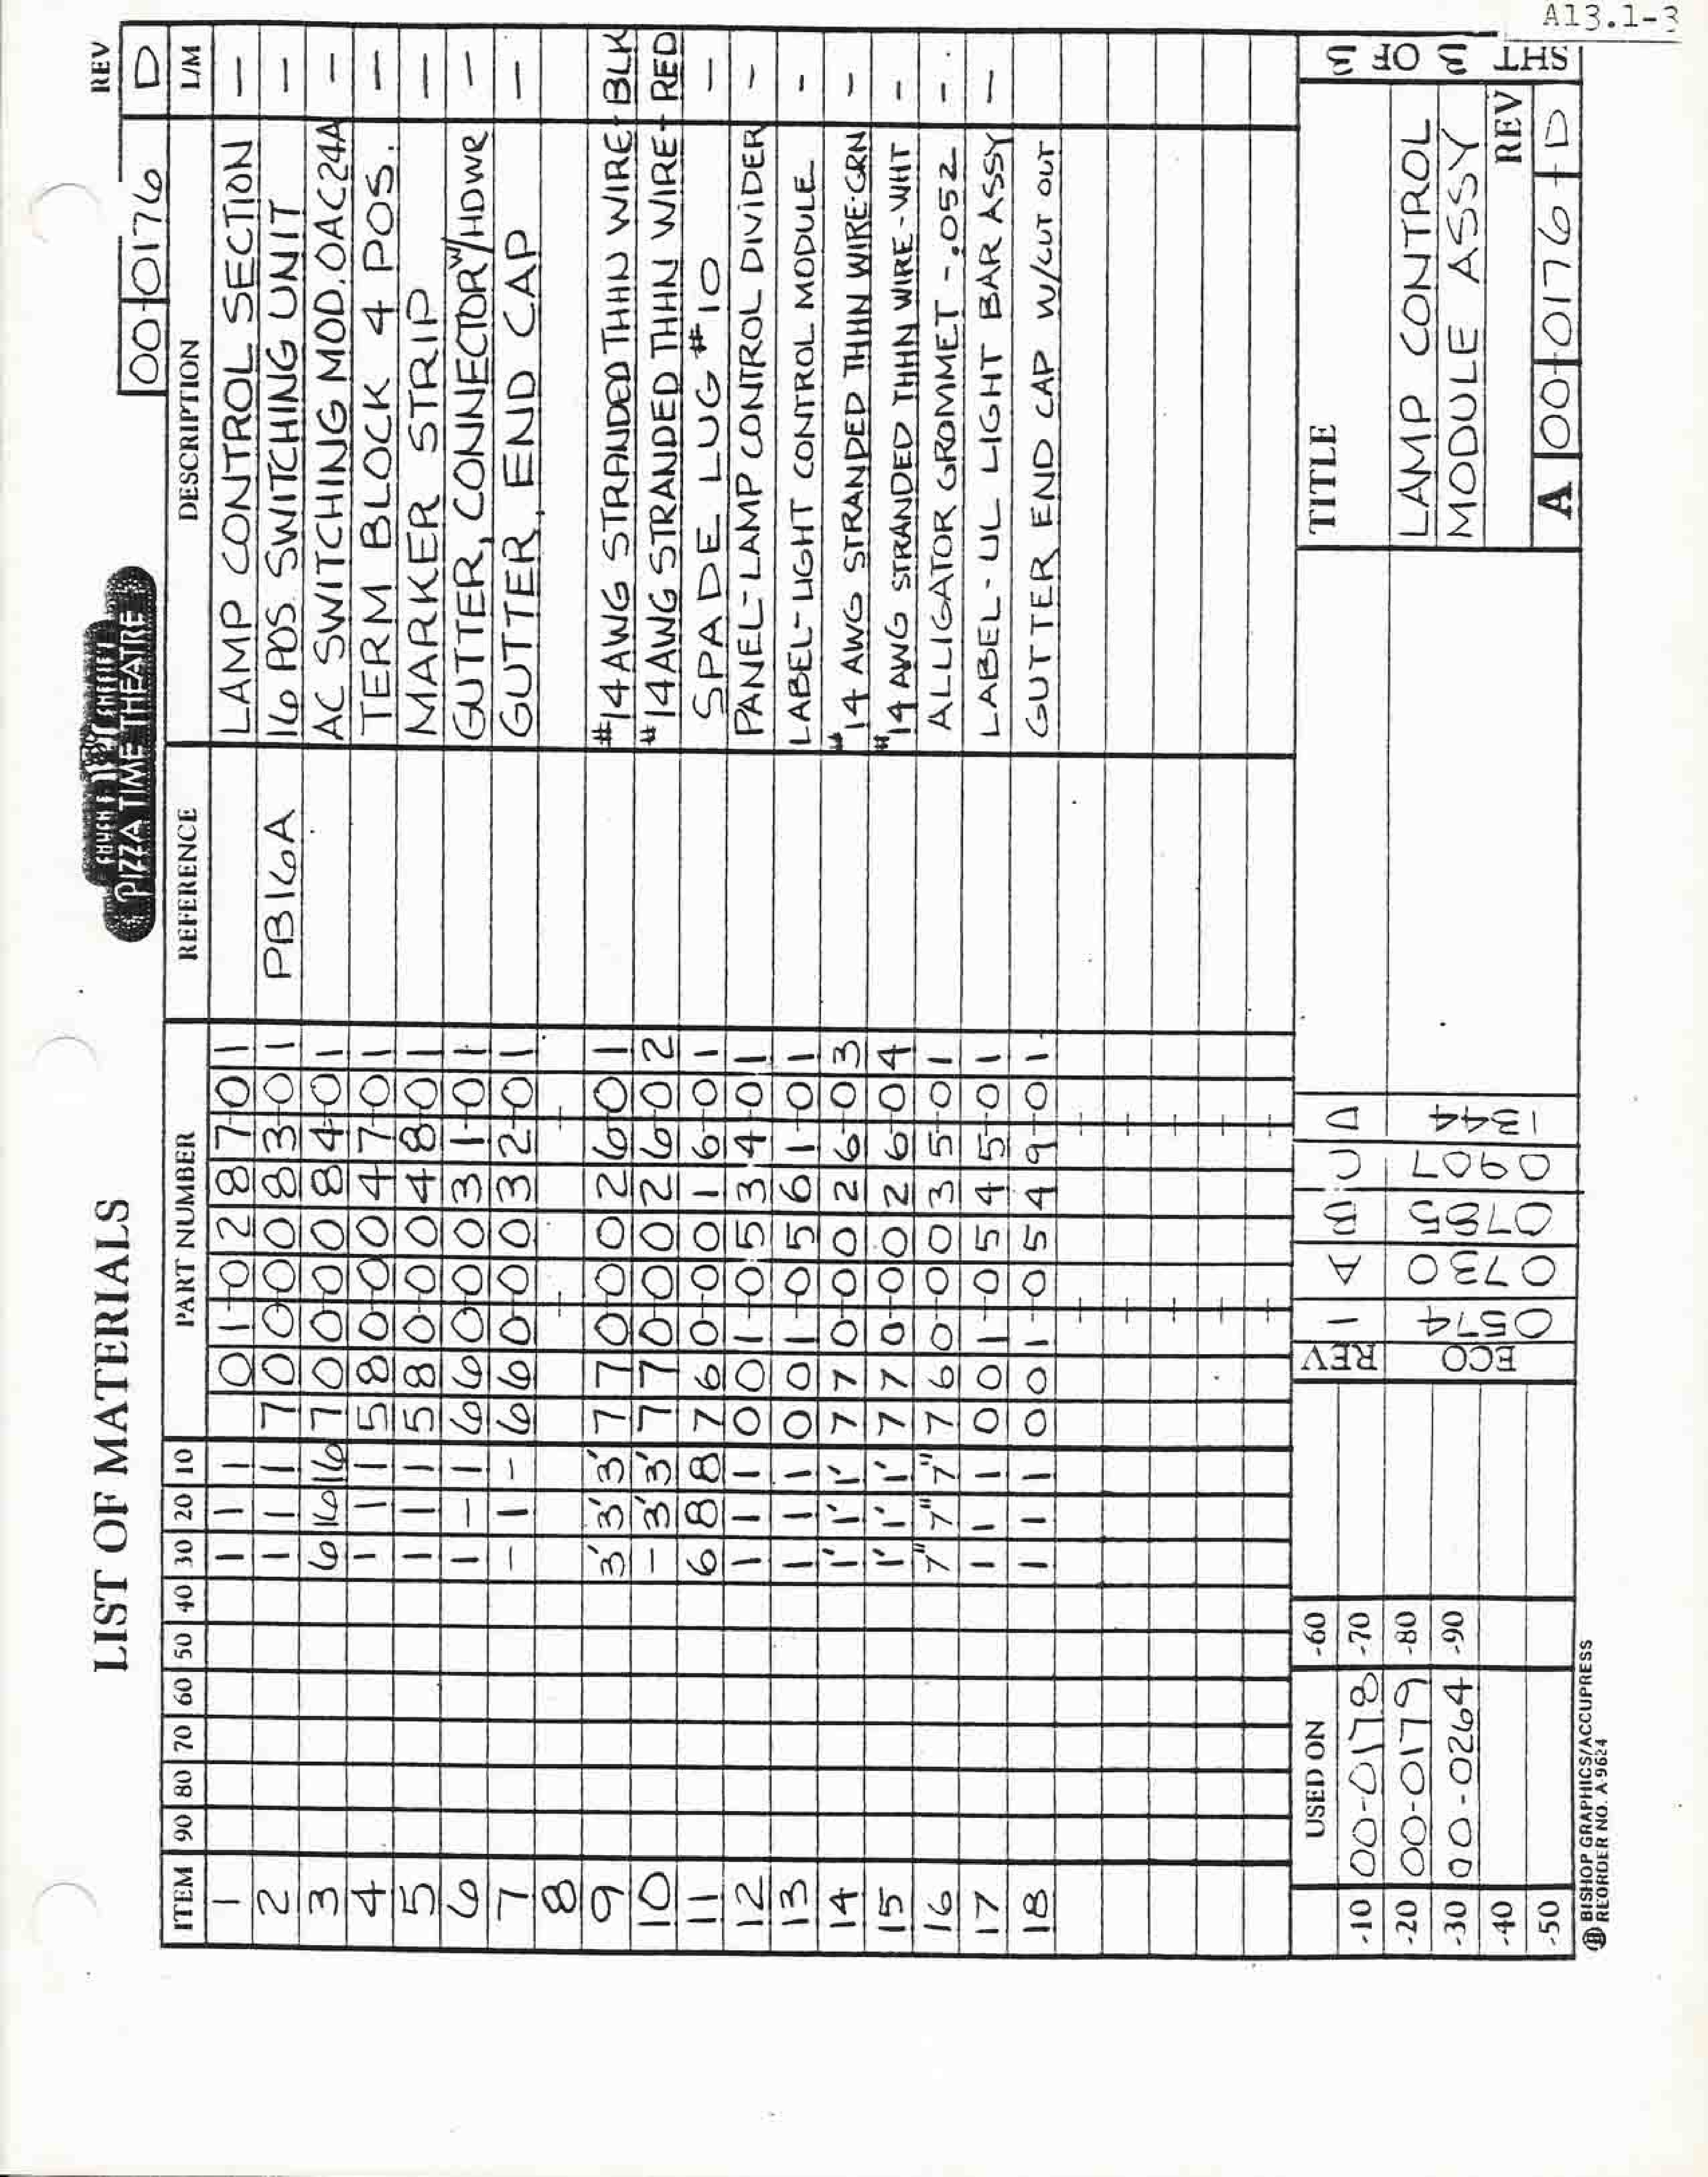 A13.1-3
LIST OF MATERIALS
CHUCK E. CHEESE'S
PIZZA TIME THEATRE
REV
00-0176 D
ITEM 90 80 70 60 50 40 30 20 10 PART NUMBER REFERENCE DESCRIPTION L/M
1 1 1 1 01-0287-01 LAMP CONTROL SECTION -
2 1 1 1 700-0083-01 PB16A 16 POS. SWITCHING UNIT -
3 6 16 16 700-0084-01 AC SWITCHING MOD. OAC24A -
4 1 1 1 580-0047-01 TERM BLOCK 4 POS. -
5 1 1 1 580-0048-01 MARKER STRIP -
6 1 - 1 660-0031-01 GUTTER, CONNECTOR W/HDWR -
7 - 1 - 660-0032-01 GUTTER, END CAP -
8
9 3' 3' 3' 770-0026-01 #14 AWG STRANDED THHN WIRE- BLK
10 - 3' 3' 770-0026-02 #14 AWG STRANDED THHN WIRE- RED
11 6 8 8 760-0016-01 SPADE LUG #10 -
12 1 1 1 001-0534-01 PANEL-LAMP CONTROL DIVIDER -
13 1 1 1 001-0561-01 LABEL-LIGHT CONTROL MODULE -
14 1' 1' 1' 770-0026-03 #14 AWG STRANDED THHN WIRE-GRN -
15 1' 1' 1' 770-0026-04 #14 AWG STRANDED THHN WIRE-WHT -
16 7" 7" 7" 760-0035-01 ALLIGATOR GROMMET -.052 -
17 1 1 1 001-0545-01 LABEL-UL LIGHT BAR ASSY -
18 1 1 1 001-0549-01 GUTTER END CAP W/CUT OUT
USED ON
-10 00-0178 -60
-20 00-0179 -70
-30 00-0264 -80
-40 -90
-50
REV 1 A B C D
ECO 0574 0730 0785 0907 1344
TITLE
LAMP CONTROL
MODULE ASSY
REV
A 00-0176- D
SHT 3 OF 3
BISHOP GRAPHICS/ACCUPRESS
REORDER NO. A-9624